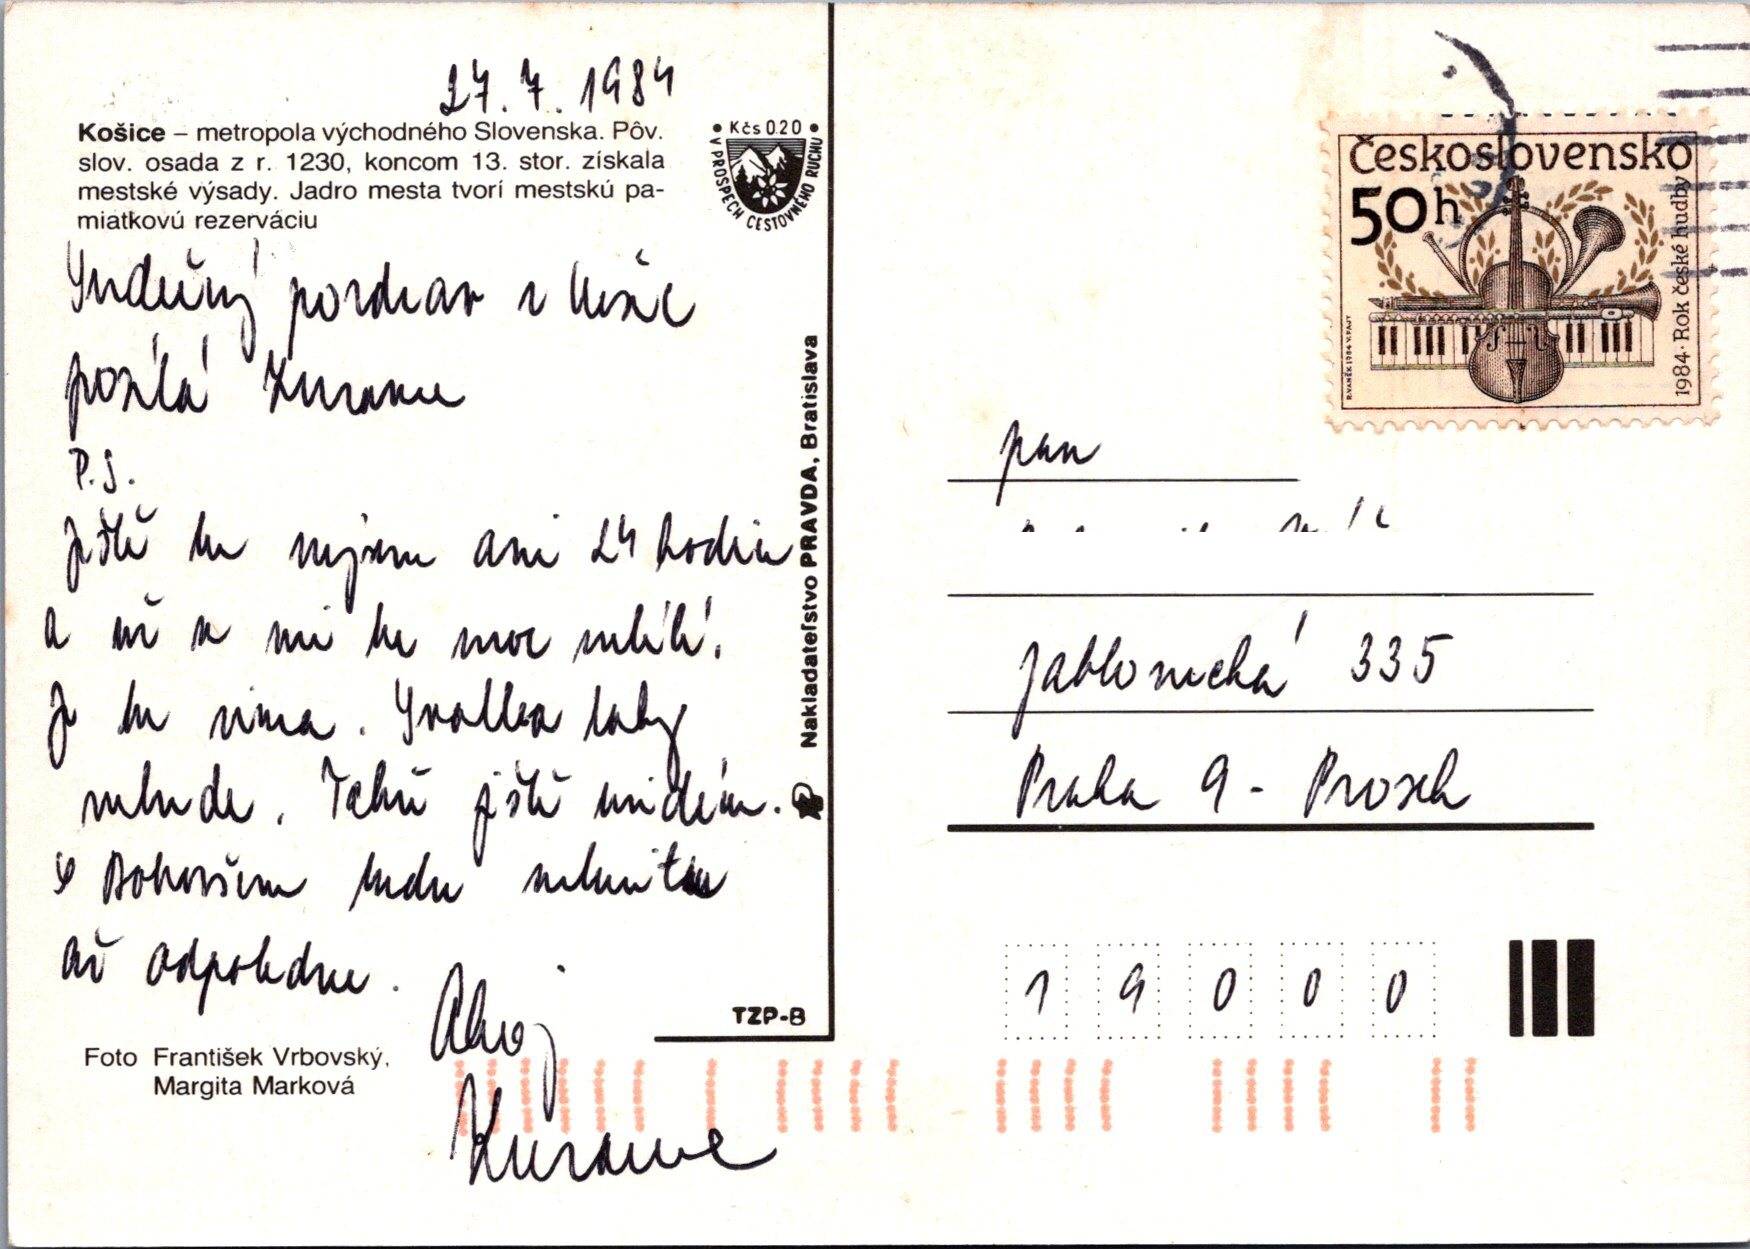 27. 7. 1984
Košice – metropola východného Slovenska. Pôv.
slov. osada z r. 1230, koncom 13. stor. získala
mestské výsady. Jadro mesta tvorí mestskú pa-
miatkovú rezerváciu
• Kčs 0.20 •
V PROSPECH CESTOVNÉHO RUCHU
Srdečný pozdrav z Košic
posílá Zuzana
P.S.
Ještě tu nejsem ani 24 hodin
a už se mi tu moc nelíbí.
Je tu zima.
nebude. ještě
S
až odpoledne.
Ahoj
Zuzana
Foto František Vrbovský,
Margita Marková
TZP-B
Nakladateľstvo PRAVDA, Bratislava
Československo
50h
1984 · Rok české hudby
R. VANĚK 1984 V. FAJT
pan
Jablonecká 335
Praha 9 - Prosek
1 9 0 0 0